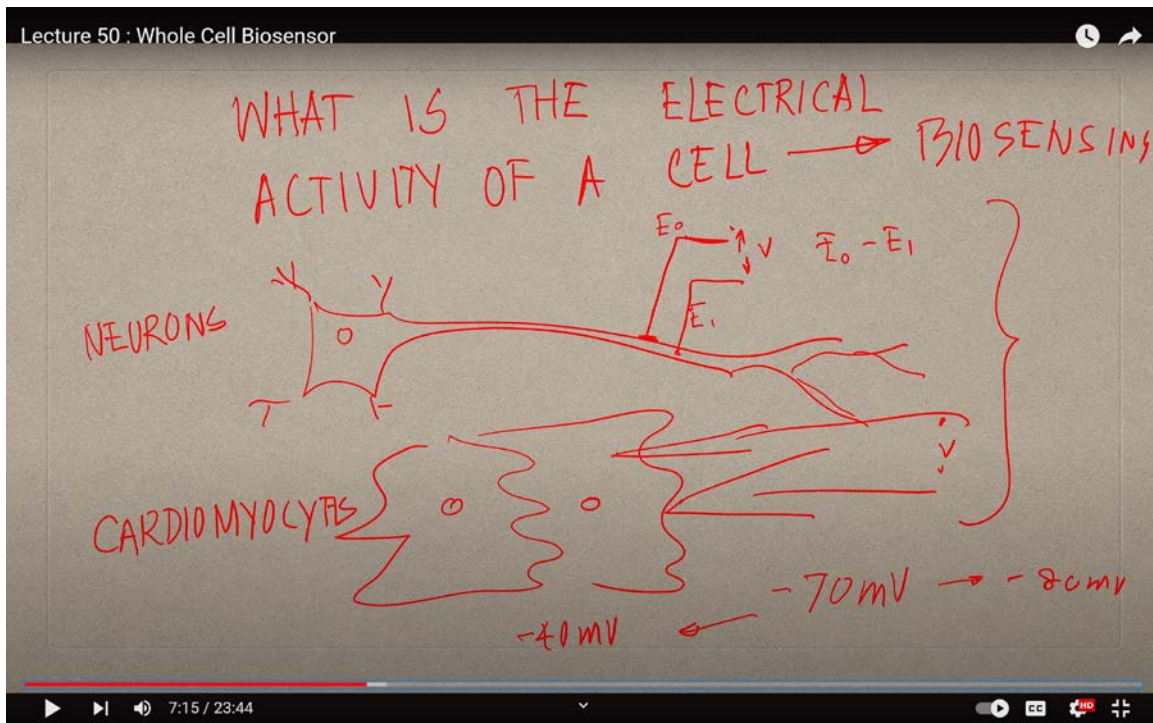 Lecture 50 : Whole Cell Biosensor
WHAT IS THE ELECTRICAL
ACTIVITY OF A CELL → BIOSENSING
E0
V E0 - E1
E1
NEURONS
V
CARDIOMYOCYTES
-40mV ← -70mV → -80mV
7:15 / 23:44
CC
HD